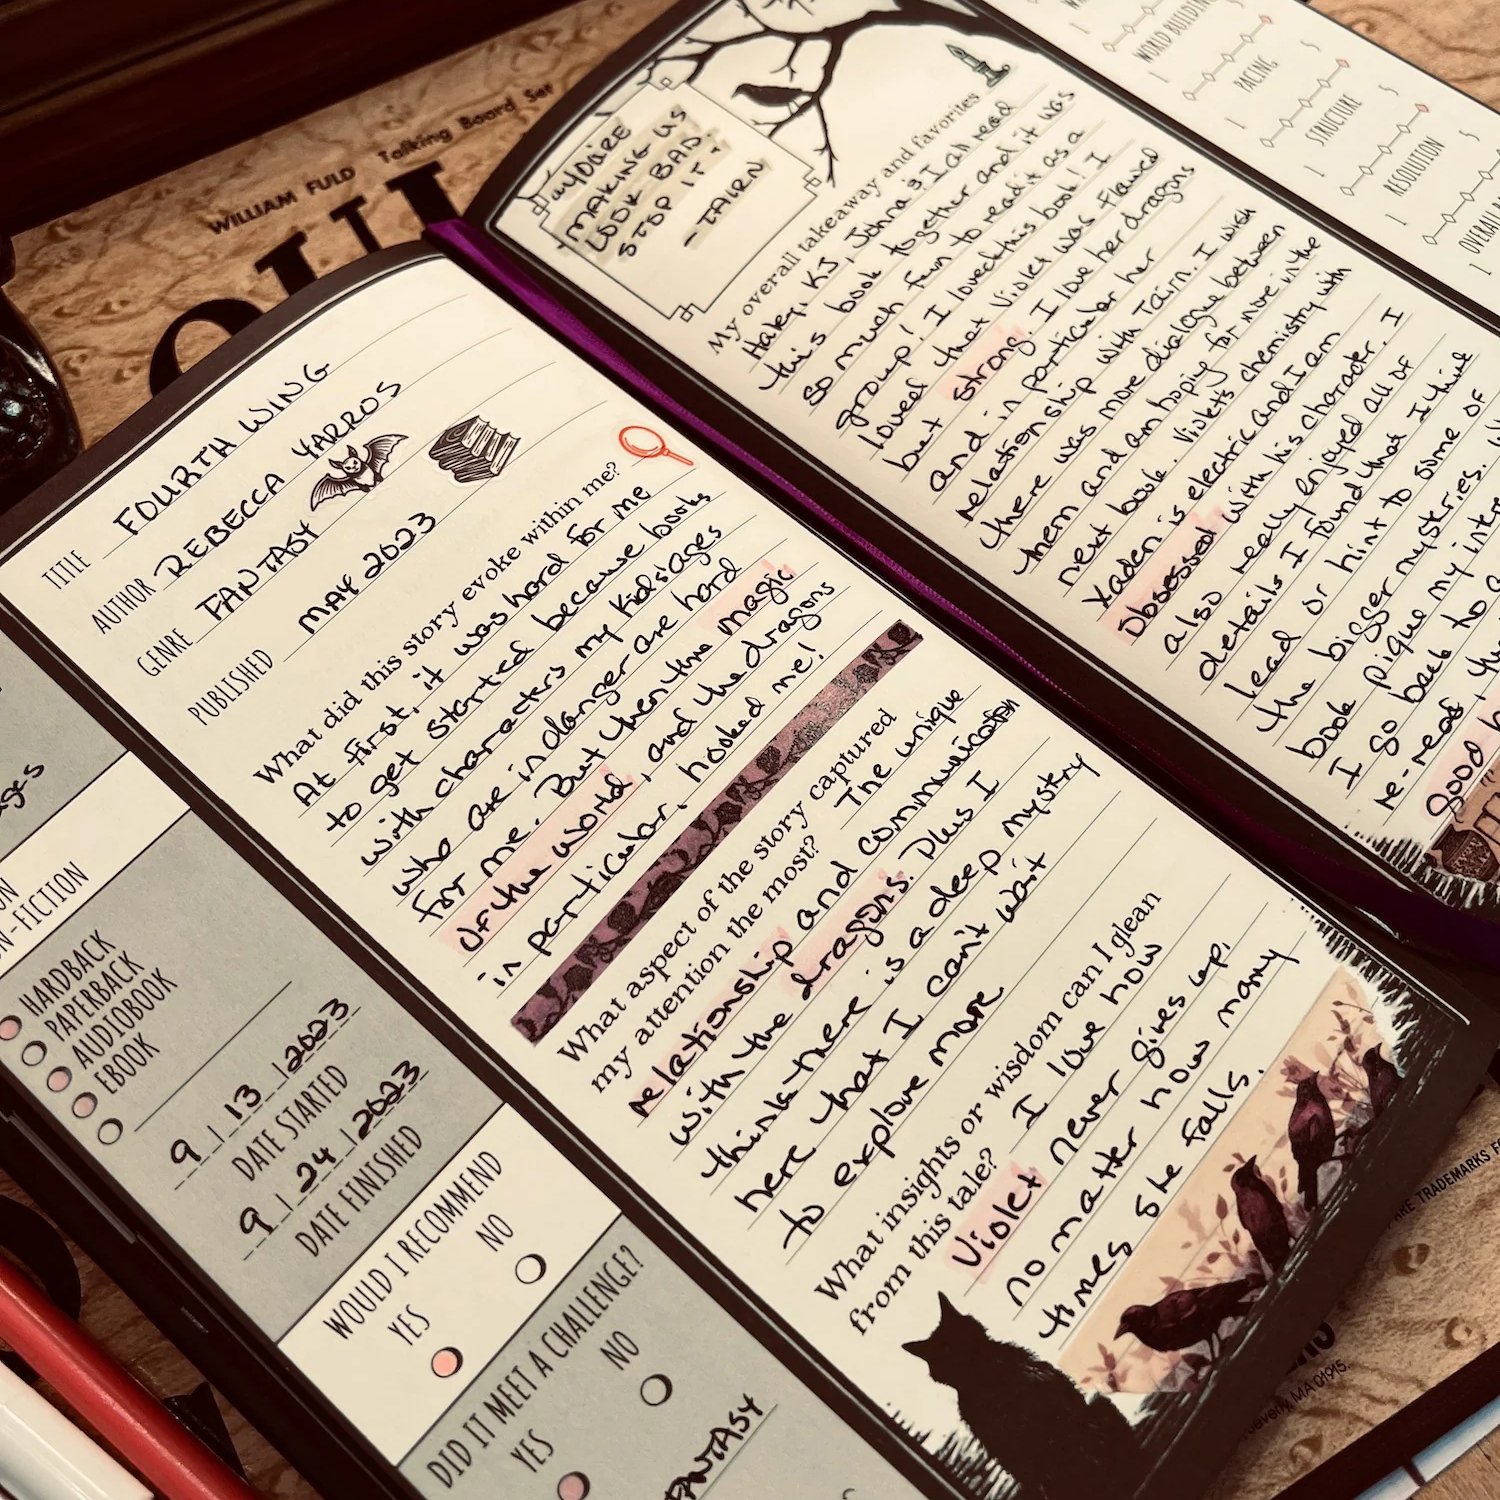 WILLIAM FULD Talking Board Set
OUI
TITLE FOURTH WING
AUTHOR REBECCA YARROS
GENRE FANTASY
PUBLISHED MAY 2023
What did this story evoke within me?
At first, it was hard for me
to get started because books
with characters my kids' ages
who are in danger are hard
for me. But then the magic
of the world, and the dragons
in particular, hooked me!
What aspect of the story captured
my attention the most? The unique
relationship and communication
with the dragons. Plus I
think there is a deep mystery
here that I can't wait
to explore more.
What insights or wisdom can I glean
from this tale? I love how
Violet never gives up,
no matter how many
times she falls.
-FICTION
HARDBACK
PAPERBACK
AUDIOBOOK
EBOOK
9 | 13 | 2023
DATE STARTED
9 | 24 | 2023
DATE FINISHED
WOULD I RECOMMEND
YES NO
DID IT MEET A CHALLENGE?
YES NO
FANTASY
MAKING US
LOOK BAD.
STOP IT.
-TAIRN
My overall takeaway and favorites
Haley, KJ, Johna & I all read
this book together and it was
so much fun to read it as a
group! I loved this book! I
loved that Violet was flawed
but strong. I love her dragons
and in particular her
relationship with Tairn. I wish
there was more dialogue between
them and am hoping for more in the
next book. Violet's chemistry with
Xaden is electric and I am
Obsessed with his character. I
also really enjoyed all of
details I found that I think
lead or hint to some of
the bigger mysteries.
book pique my
I go back to
re-read,
good
WORLD BUILDING
1 5
PACING
1 5
STRUCTURE
1 5
RESOLUTION
1 5
OVERALL
1
TRADEMARKS
Beverly, MA 01915.